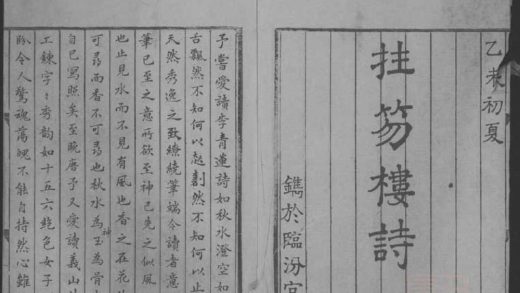 乙未初夏
拄笏樓詩
鐫於臨汾官
予嘗愛讀李青蓮詩如秋水澄空如
古飄然不知何以起劃然不知何以止
天然秀逸之致繚繞筆端令讀者意
筆已至之意所欲至神已先之似風
也止見水而不見有風也香之在花
可尋而香不可尋也秋水為神玉為骨
自己寫照矣至晚唐予又愛讀義山
工鍊字字秀韵如十五六絕色女子
睇令人驚魂蕩魄不能自持然心雖